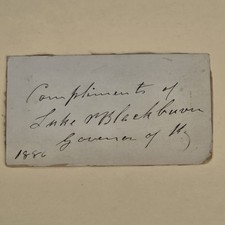 Compliments of
Luke P Blackburn
Governor of Ky
1880